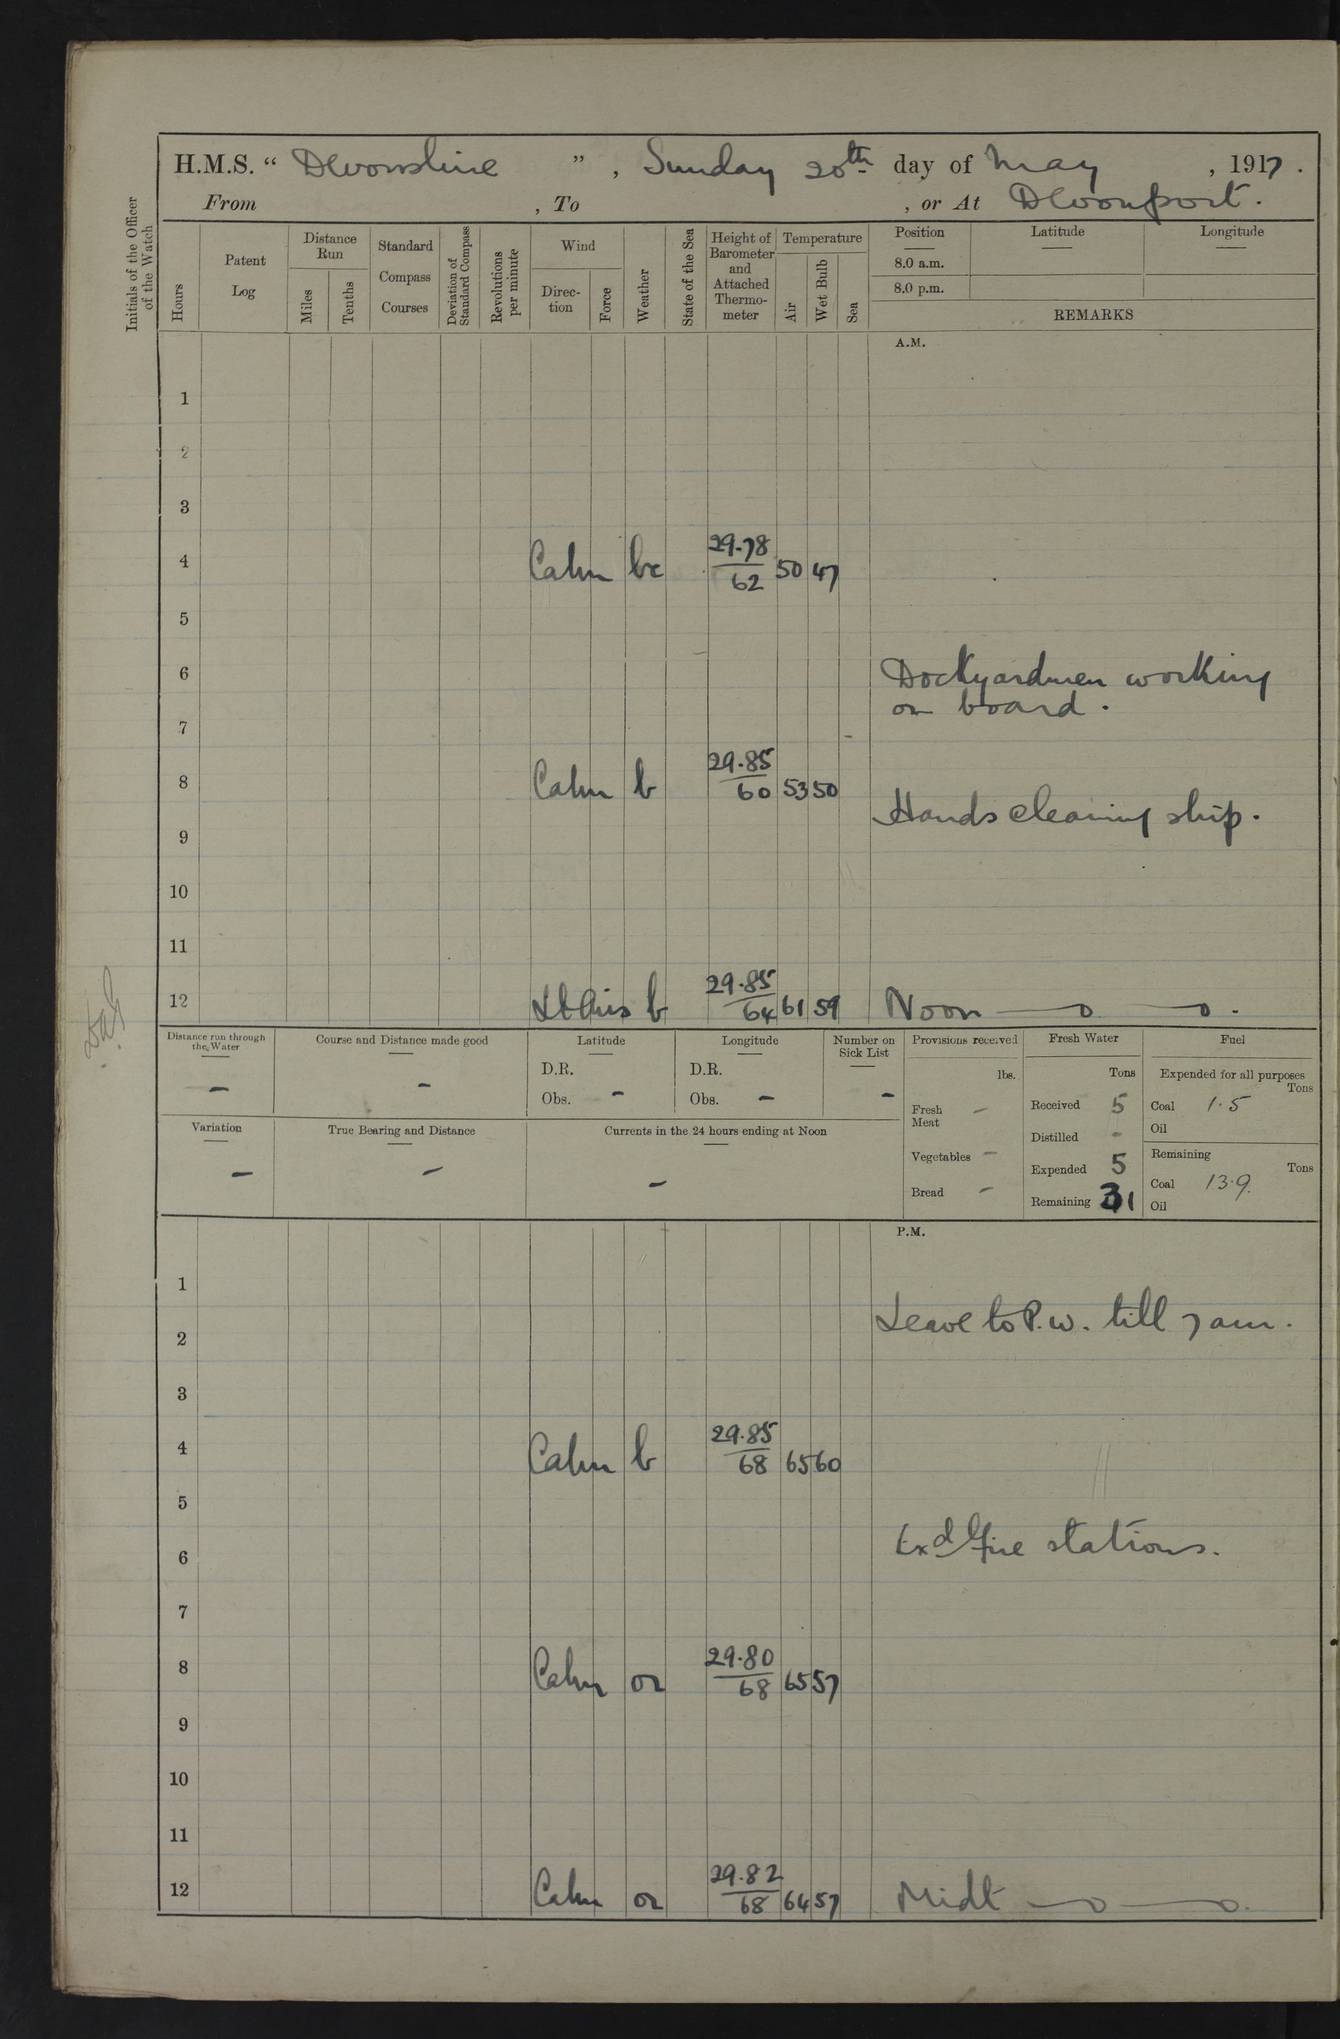 H.M.S. “ Devonshire ” , Sunday 20th day of May , 1917 .
From , To , or At Devonport .
Initials of the Officer of the Watch
Hours
Patent Log
Distance Run
Miles
Tenths
Standard Compass Courses
Deviation of Standard Compass
Revolutions per minute
Wind
Direction
Force
Weather
State of the Sea
Height of Barometer and Attached Thermometer
Temperature
Air
Wet Bulb
Sea
Position Latitude Longitude
8.0 a.m.
8.0 p.m.
REMARKS
A.M.
1
2
3
4 Calm bc 29.78/62 50 47
5
6 Dockyardmen working
on board .
7
8 Calm b 29.85/60 53 50
Hands cleaning ship .
9
10
11
12 Lt Airs b 29.85/64 61 59 Noon
Distance run through the Water —
Course and Distance made good —
Latitude
D.R.
Obs. —
Longitude
D.R.
Obs. —
Number on Sick List —
Provisions received
lbs.
Fresh Meat —
Vegetables —
Bread —
Fresh Water
Tons
Received 5
Distilled -
Expended 5
Remaining 31
Fuel
Expended for all purposes
Tons
Coal 1.5
Oil
Remaining
Tons
Coal 13.9.
Oil
Variation —
True Bearing and Distance —
Currents in the 24 hours ending at Noon —
P.M.
1
Leave to P.W. till 7 am .
2
3
4 Calm b 29.85/68 65 60
5
Exd fire stations .
6
7
8 Calm or 29.80/68 65 57
9
10
11
12 Calm or 29.82/68 64 57 Midt